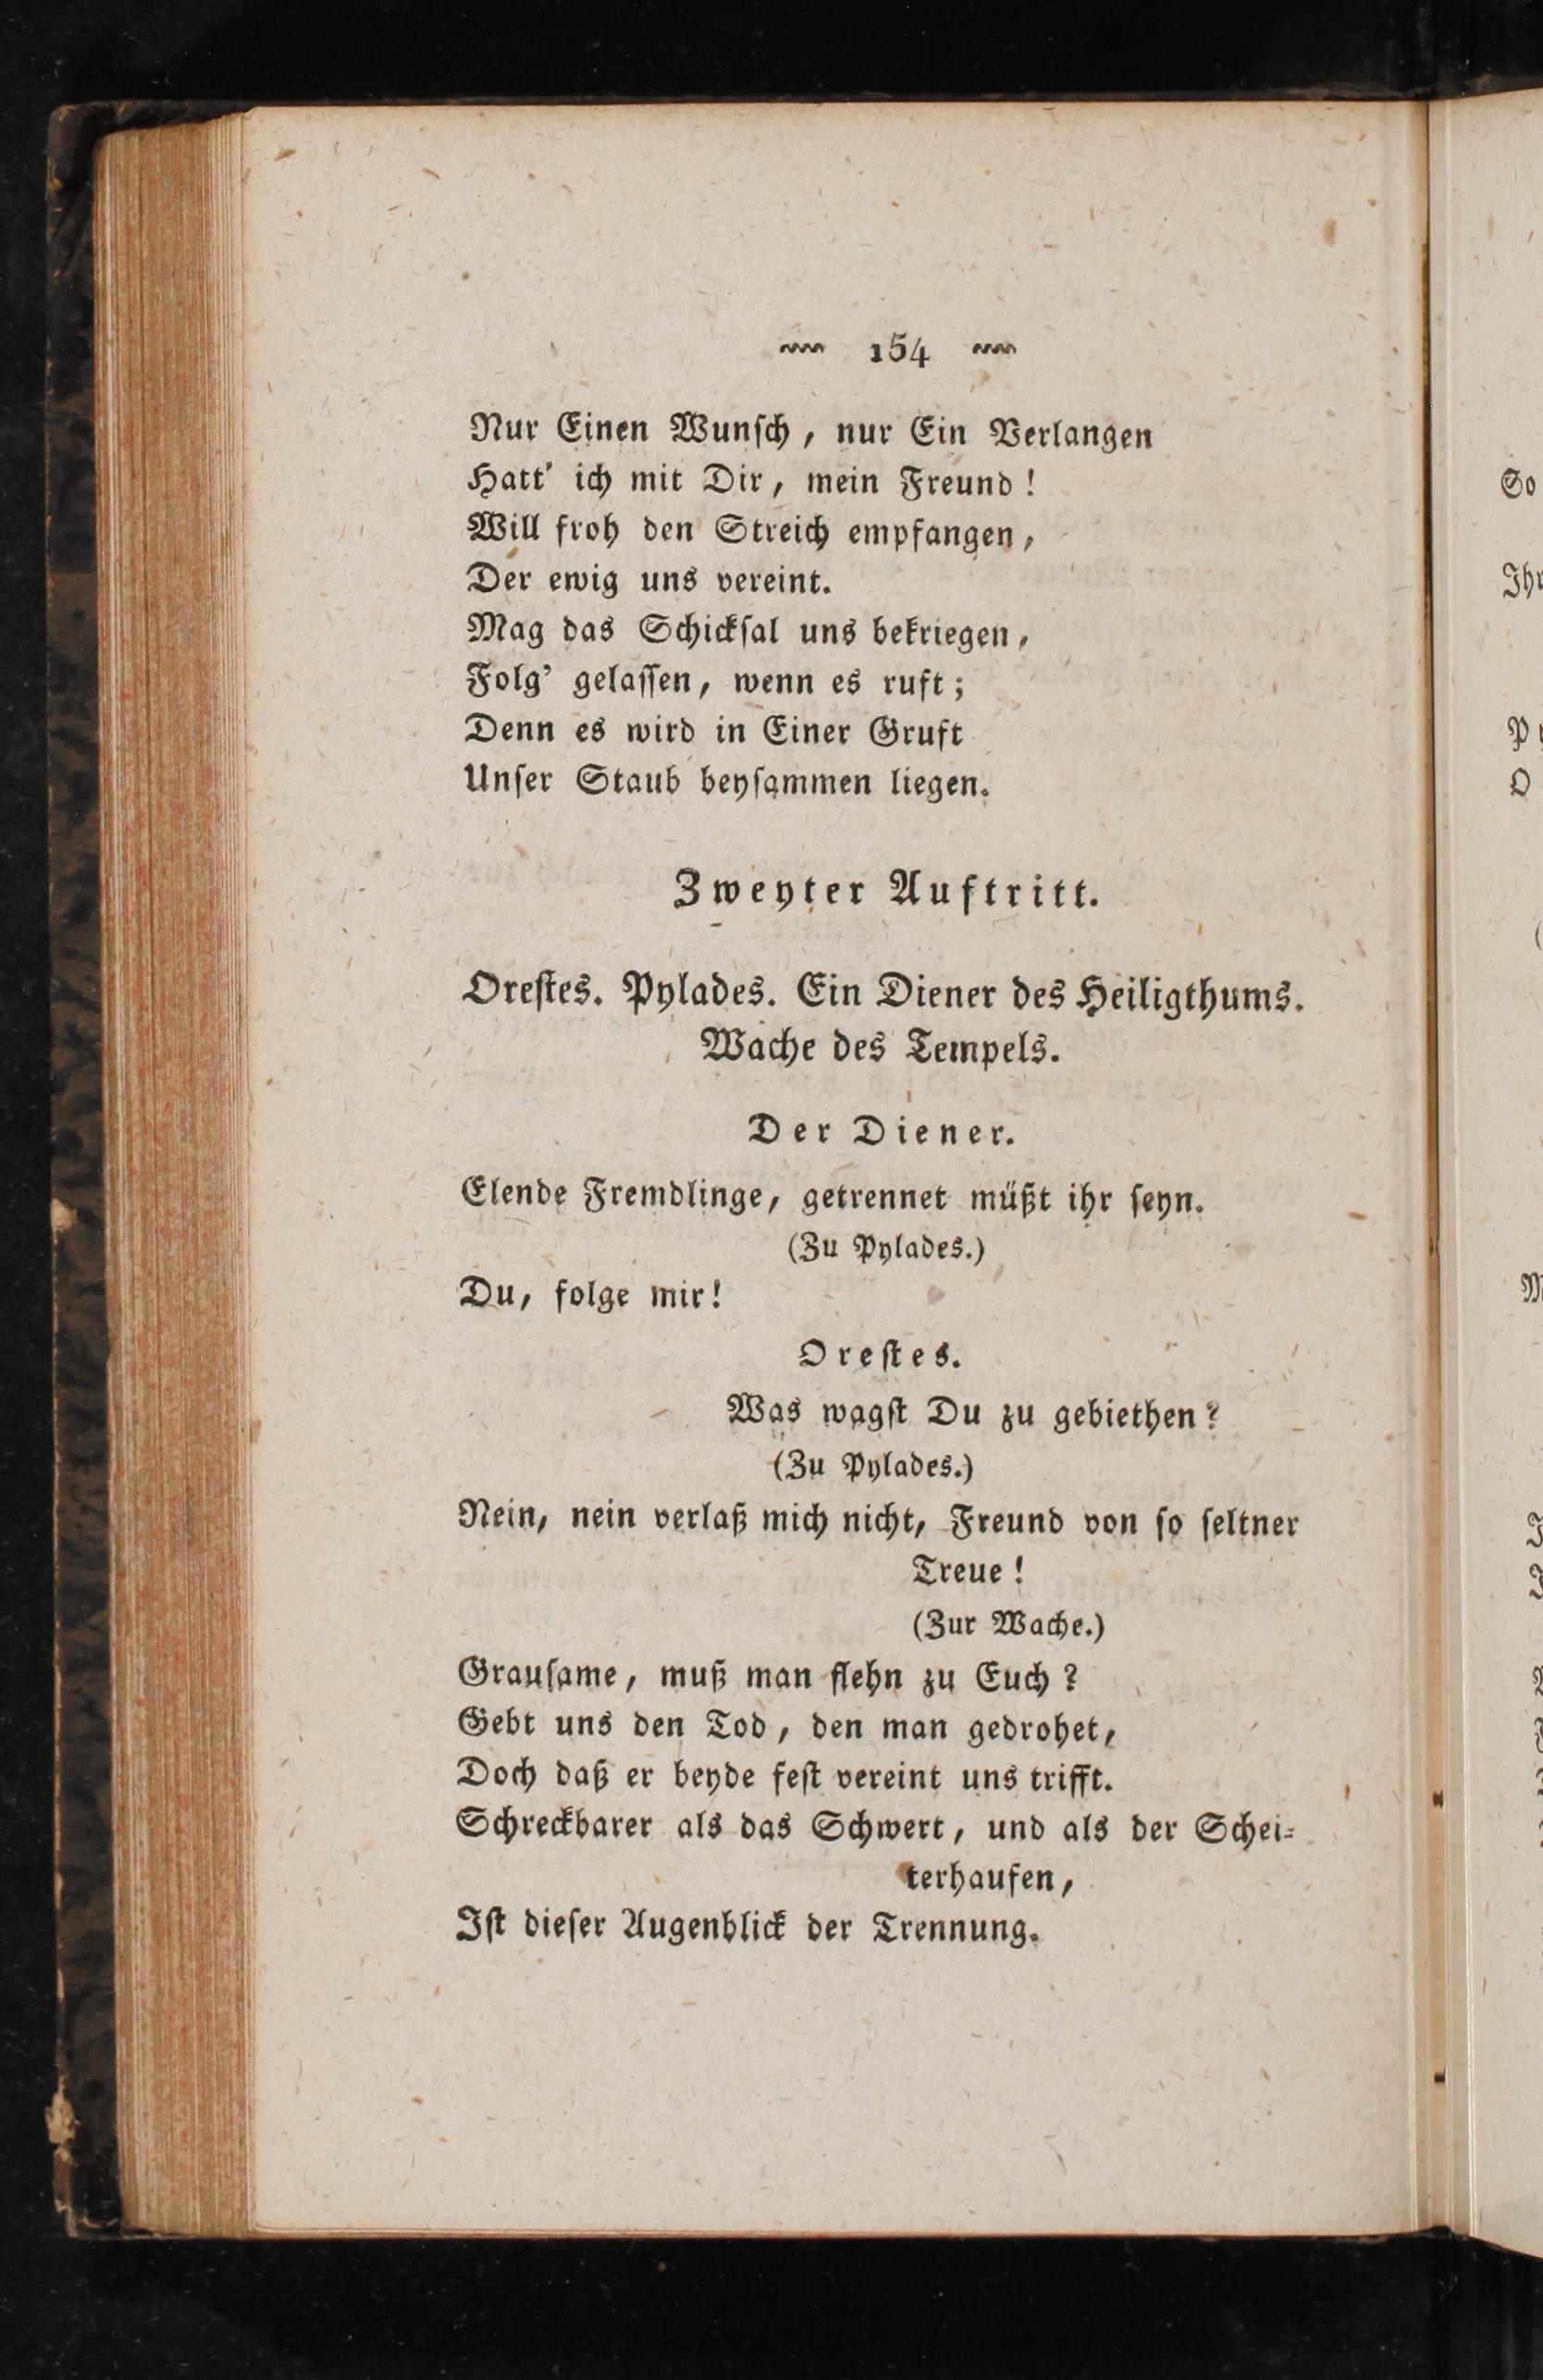 154
Nur Einen Wunſch, nur Ein Verlangen
Hatt' ich mit Dir, mein Freund!
Will froh den Streich empfangen,
Der ewig uns vereint.
Mag das Schickſal uns bekriegen,
Folg' gelaſſen, wenn es ruft;
Denn es wird in Einer Gruft
Unſer Staub beyſammen liegen.
Zweyter Auftritt.
Oreſtes. Pylades. Ein Diener des Heiligthums.
Wache des Tempels.
Der Diener.
Elende Fremdlinge, getrennet müßt ihr ſeyn.
(Zu Pylades.)
Du, folge mir!
Oreſtes.
Was wagſt Du zu gebiethen?
(Zu Pylades.)
Nein, nein verlaß mich nicht, Freund von ſo ſeltner
Treue!
(Zur Wache.)
Grauſame, muß man flehn zu Euch?
Gebt uns den Tod, den man gedrohet,
Doch daß er beyde feſt vereint uns trifft.
Schreckbarer als das Schwert, und als der Schei-
terhaufen,
Iſt dieſer Augenblick der Trennung.
So